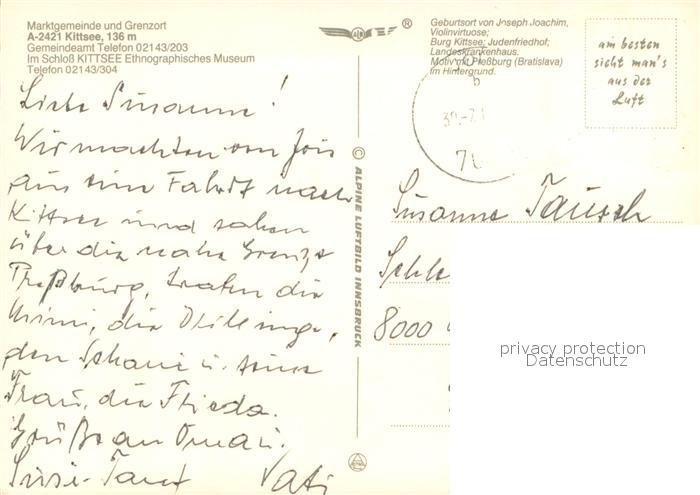 Marktgemeinde und Grenzort
A-2421 Kittsee, 136 m
Gemeindeamt Telefon 02143/203
Im Schloß KITTSEE Ethnographisches Museum
Telefon 02143/304
®
Geburtsort von Joseph Joachim,
Violinvirtuose;
Burg Kittsee; Judenfriedhof;
Landeskrankenhaus.
Motiv mit Preßburg (Bratislava)
im Hintergrund.
am besten
sieht man's
aus der
Luft
Liebe Susanne!
Wir machten von Jois
aus eine Fahrt nach
Kittsee und sahen
über die nahe Grenze
Preßburg, trafen die
Mimi, die
den u. seine
Frau, die Frieda.
Grüße an Oma u.
Susi-Tant Vati
© ALPINE LUFTBILD INNSBRUCK
Susanne Tausch
8000
privacy protection
Datenschutz